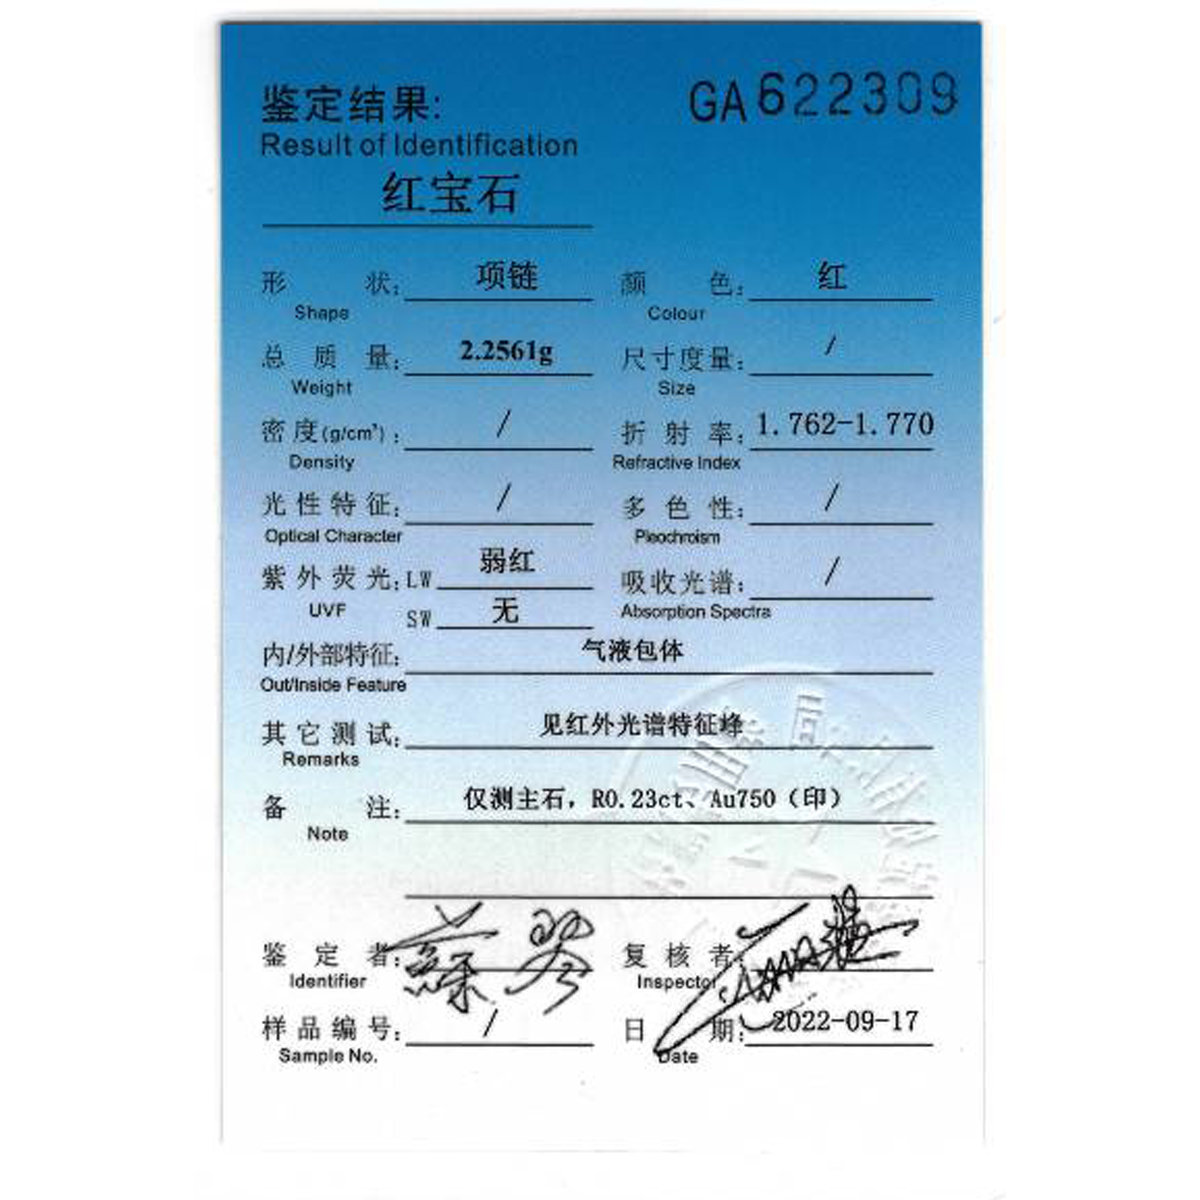 鉴定结果:
GA622309
Result of Identification
红宝石
形 状: 项链 颜 色: 红
Shape Colour
总 质 量: 2.2561g 尺寸度量: /
Weight Size
密度(g/cm³): / 折 射 率: 1.762-1.770
Density Refractive Index
光性特征: / 多 色 性: /
Optical Character Pleochroism
紫外荧光: LW 弱红 吸收光谱: /
UVF SW 无 Absorption Spectra
内/外部特征: 气液包体
Out/Inside Feature
其它测试: 见红外光谱特征峰
Remarks
备 注: 仅测主石, R0.23ct、Au750(印)
Note
鉴 定 者: 复 核 者:
Identifier Inspector
样品编号: / 日 期: 2022-09-17
Sample No. Date